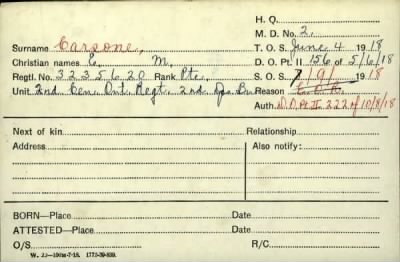 H. Q.
M. D. No. 2.
Surname Carsone, T. O. S. June 4 1918
Christian names C. M. D. O. Pt. II 156 of 5/6/18
Regtl. No. 3235620 Rank Pte. S. O. S. 7/9/ 1918
Unit 2nd Cen. Ont. Regt. 2nd Dps Bn Reason
Auth. D.O. Pt II 222 of 10/8/18
Next of kin Relationship
Address Also notify:
BORN—Place Date
ATTESTED—Place Date
O/S R/C